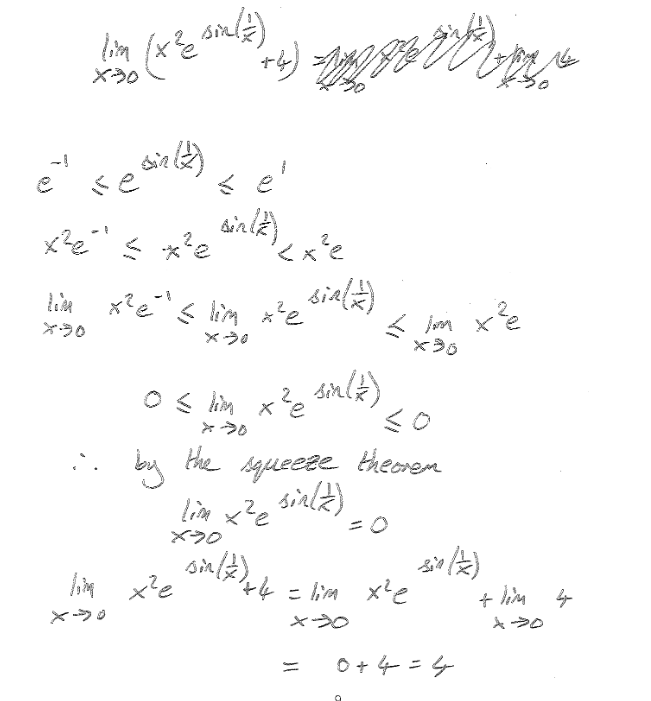 lim x→0 (x²e^(sin(1/x)) + 4) =
e⁻¹ ≤ e^(sin(1/x)) ≤ e¹
x²e⁻¹ ≤ x²e^(sin(1/x)) < x²e
lim x→0 x²e⁻¹ ≤ lim x→0 x²e^(sin(1/x)) ≤ lim x→0 x²e
0 ≤ lim x→0 x²e^(sin(1/x)) ≤ 0
∴ by the squeeze theorem
lim x→0 x²e^(sin(1/x)) = 0
lim x→0 x²e^(sin(1/x)) + 4 = lim x→0 x²e^(sin(1/x)) + lim x→0 4
= 0 + 4 = 4